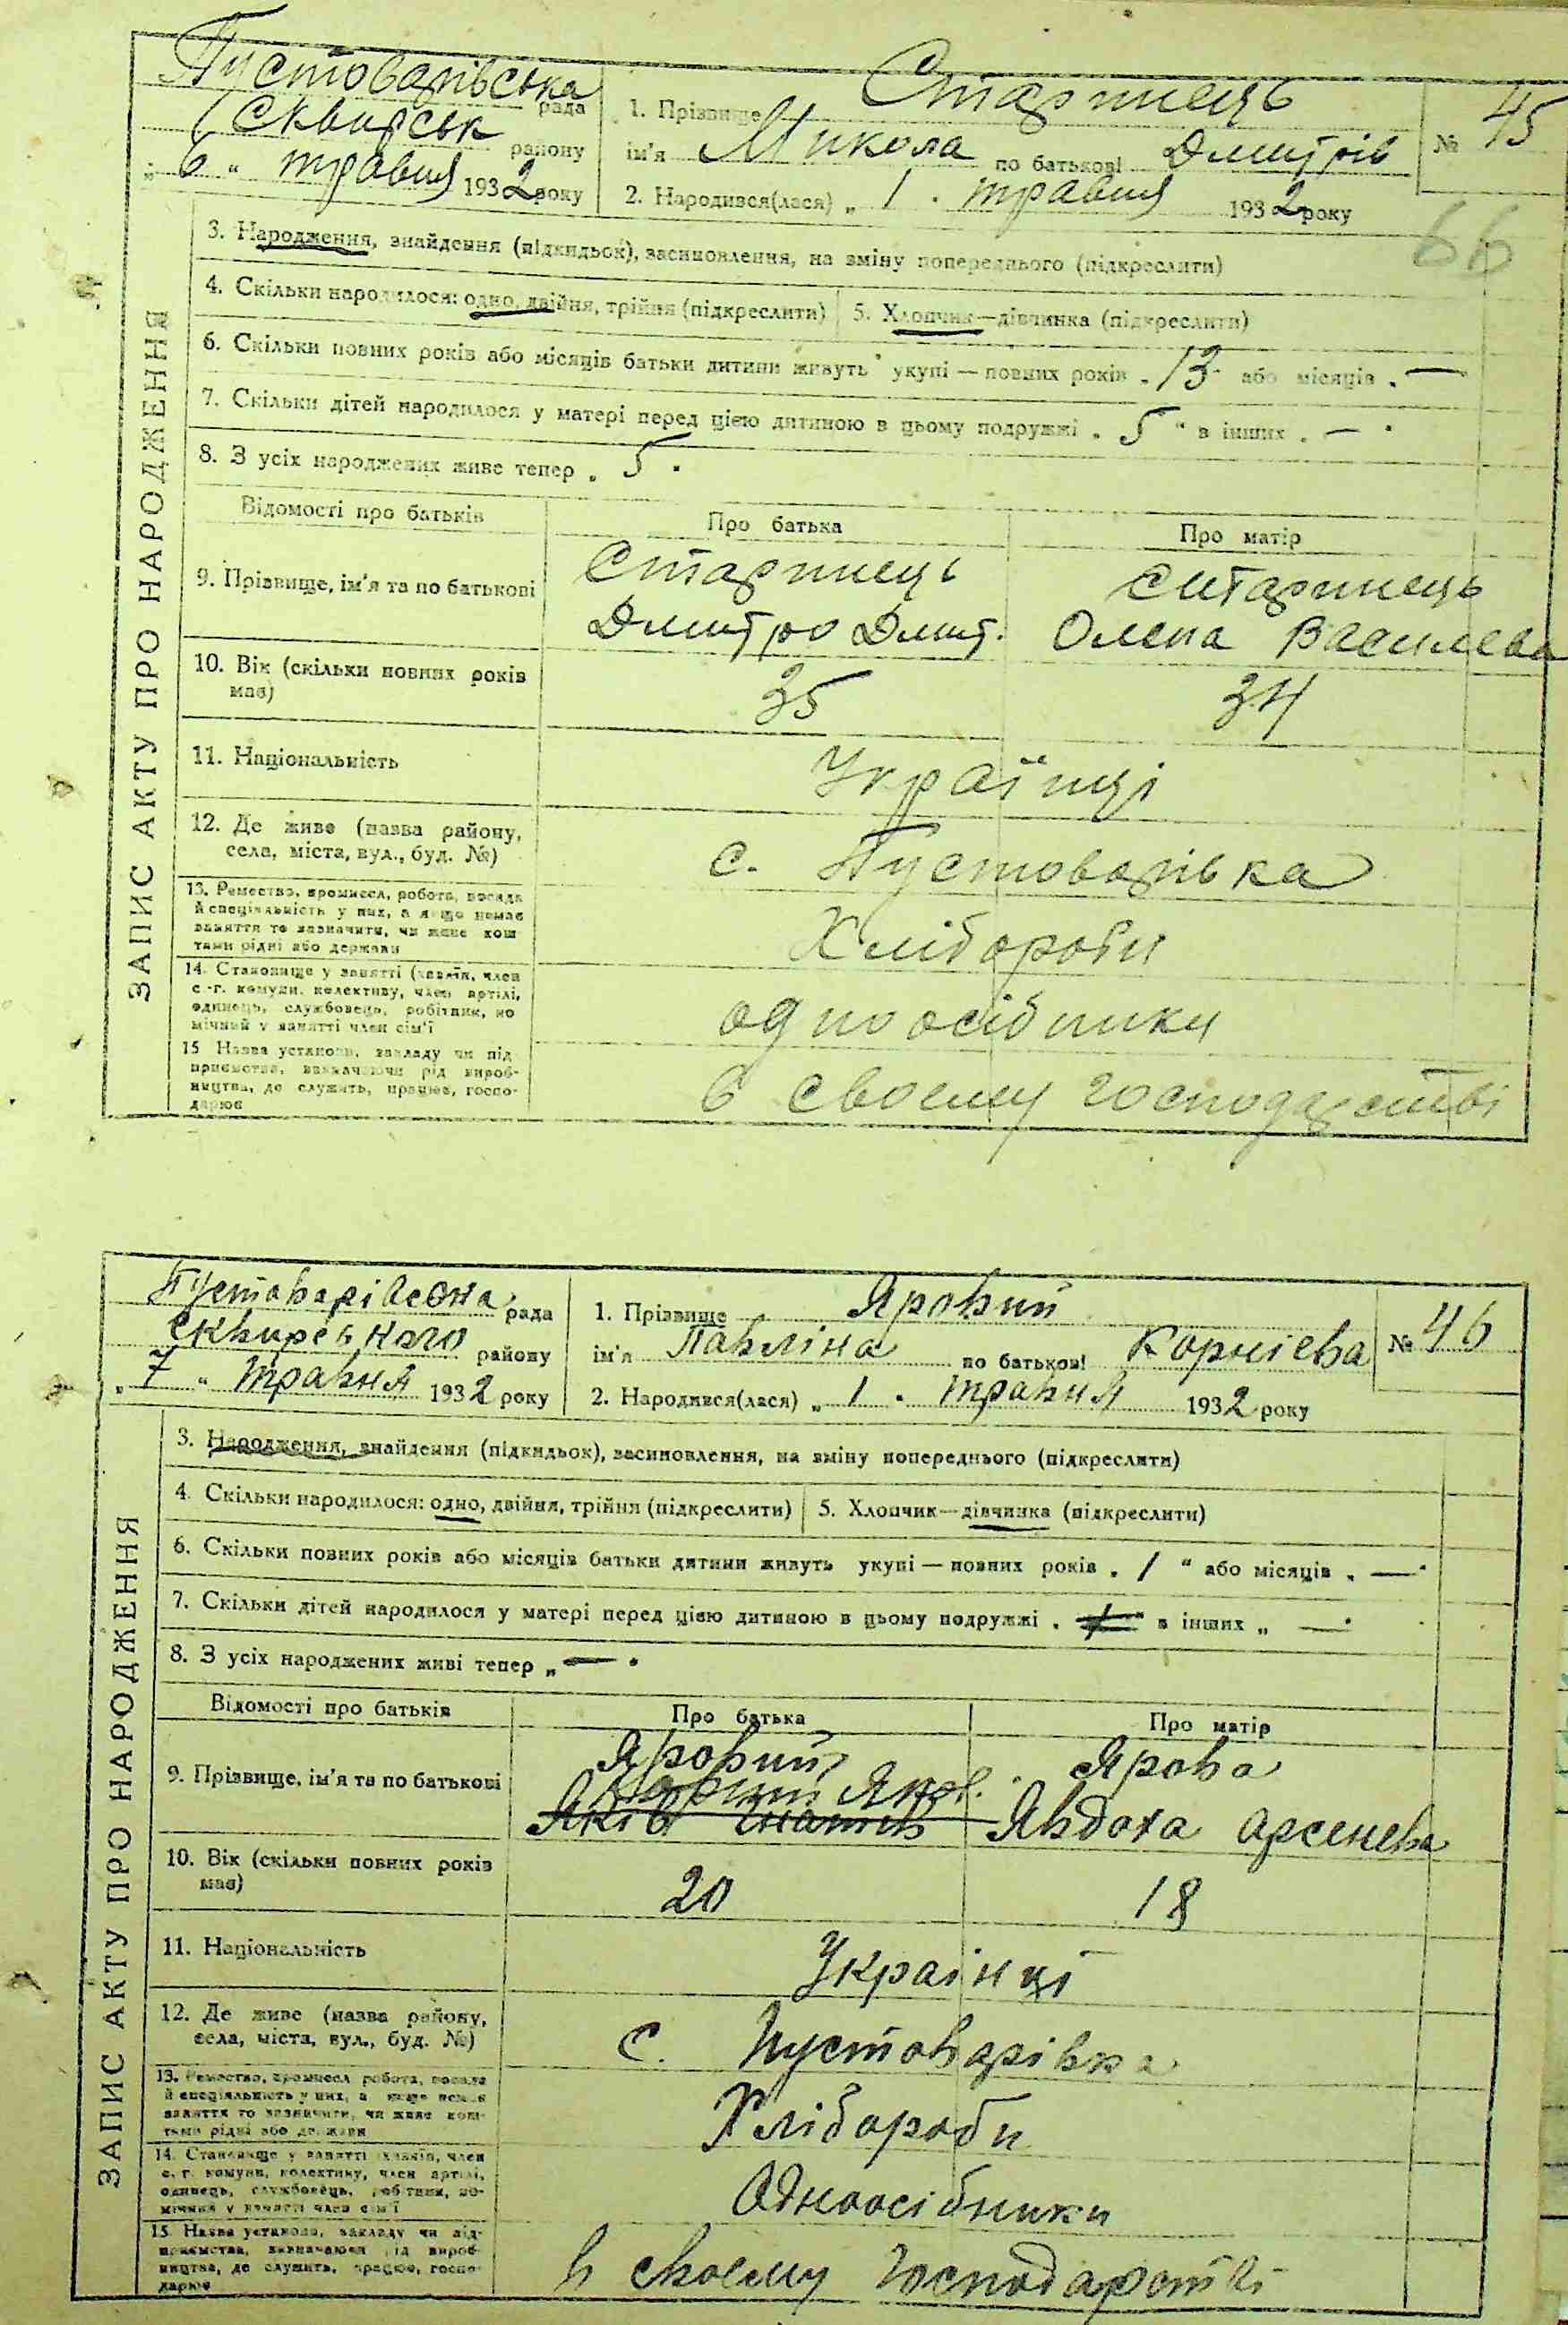 Пустоварівська рада
Сквирськ району
„ 6 " травня 1932 року
1. Прізвище Старинець
ім'я Микола по батькові Дмитрів
2. Народився(лася) „ 1 " травня 1932 року
№ 45
66
ЗАПИС АКТУ ПРО НАРОДЖЕННЯ
3. Народження, знайдення (підкидьок), засиновлення, на зміну попереднього (підкреслити)
4. Скільки народилося: одно, двійня, трійня (підкреслити) 5. Хлопчик—дівчинка (підкреслити)
6. Скільки повних років або місяців батьки дитини живуть укупі — повних років „ 13 " або місяців „ —
7. Скільки дітей народилося у матері перед цією дитиною в цьому подружжі „ 5 " в інших „ — "
8. З усіх народжених живе тепер „ 5 "
Відомості про батьків
Про батька
Про матір
9. Прізвище, ім'я та по батькові
Старинець
Дмитро Дмит.
Старинець
Олена Василева
10. Вік (скільки повних років
має)
35
34
11. Національність
Українці
12. Де живе (назва району,
села, міста, вул., буд. №)
с. Пустоварівка
13. Ремество, промисел, робота, посада
й спеціяльність у них, а якщо немає
заняття то зазначити, чи живе кош
тами рідні або держави
Хлібороби
14. Становище у занятті (хазяїн, член
с.-г. комуни, колективу, член артілі,
одинець, службовець, робітник, по
мічний у занятті член сім'ї
одноосібники
15 Назва установи, закладу чи під
приємства, зазначаючи рід вироб-
ництва, де служить, працює, госпо-
дарює
в своєму господарстві
Пустоварівська рада
Сквирського району
„ 7 " травня 1932 року
1. Прізвище Яровий
ім'я Павліна по батькові Корніева
2. Народився(лася) „ 1 " травня 1932 року
№ 46
ЗАПИС АКТУ ПРО НАРОДЖЕННЯ
3. Народження, знайдення (підкидьок), засиновлення, на зміну попереднього (підкреслити)
4. Скільки народилося: одно, двійня, трійня (підкреслити) 5. Хлопчик—дівчинка (підкреслити)
6. Скільки повних років або місяців батьки дитини живуть укупі — повних років „ 1 " або місяців „ — "
7. Скільки дітей народилося у матері перед цією дитиною в цьому подружжі „ — " в інших „ — "
8. З усіх народжених живі тепер „ — "
Відомості про батьків
Про батька
Про матір
9. Прізвище, ім'я та по батькові
Яровий
Яків
Ярова
Явдоха Арсенева
10. Вік (скільки повних років
має)
20
18
11. Національність
Українці
12. Де живе (назва району,
села, міста, вул., буд. №)
с. Пустоварівка
13. Ремество, промисел робота, посада
й спеціяльність у них, а якщо немає
заняття то зазначити, чи живе кош-
тами рідні або держави
Хлібороби
14. Становище у занятті (хазяїн, член
с. г. комуни, колективу, член артілі,
одинець, службовець, робітник, по-
мічний у занятті член сім'ї
Одноосібники
15. Назва установи, закладу чи під-
приємства, зазначаючи рід вироб-
ництва, де служить, працює, госпо-
дарює
в своєму господарстві